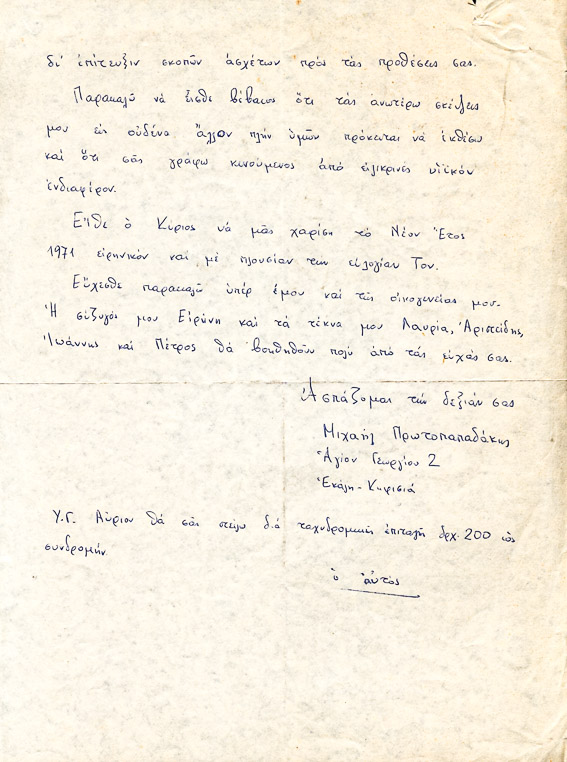 δι' ἐπίτευξιν σκοπῶν ἀσχέτων πρὸς τὰς προθέσεις σας.
Παρακαλῶ νὰ εἶσθε βέβαιος ὅτι τὰς ἀνωτέρω σκέψεις
μου εἰς οὐδένα ἄλλον πλὴν ὑμῶν πρόκειται νὰ ἐκθέσω
καὶ ὅτι σᾶς γράφω κινούμενος ἀπὸ εἰλικρινὲς υἱϊκόν
ἐνδιαφέρον.
Εἴθε ὁ Κύριος νὰ μᾶς χαρίσῃ τὸ Νέον Ἔτος
1971 εἰρηνικὸν καὶ μὲ πλουσίαν τὴν εὐλογίαν Του.
Εὔχεσθε παρακαλῶ ὑπὲρ ἐμοῦ καὶ τῆς οἰκογενείας μου.
Ἡ σύζυγός μου Εἰρήνη καὶ τὰ τέκνα μου Λαυρία, Ἀριστείδης,
Ἰωάννης καὶ Πέτρος θὰ βοηθηθοῦν πολὺ ἀπὸ τάς εὐχάς σας.
Ἀσπάζομαι τὴν δεξιάν σας
Μιχαήλ Πρωτοπαπαδάκης
Ἁγίου Γεωργίου 2
Ἑκάλη - Κηφισιά
Υ.Γ. Αὔριον θὰ σᾶς στείλω διὰ ταχυδρομικῆς ἐπιταγῆς δρχ. 200 ὡς
συνδρομήν.
ὁ αὐτὸς